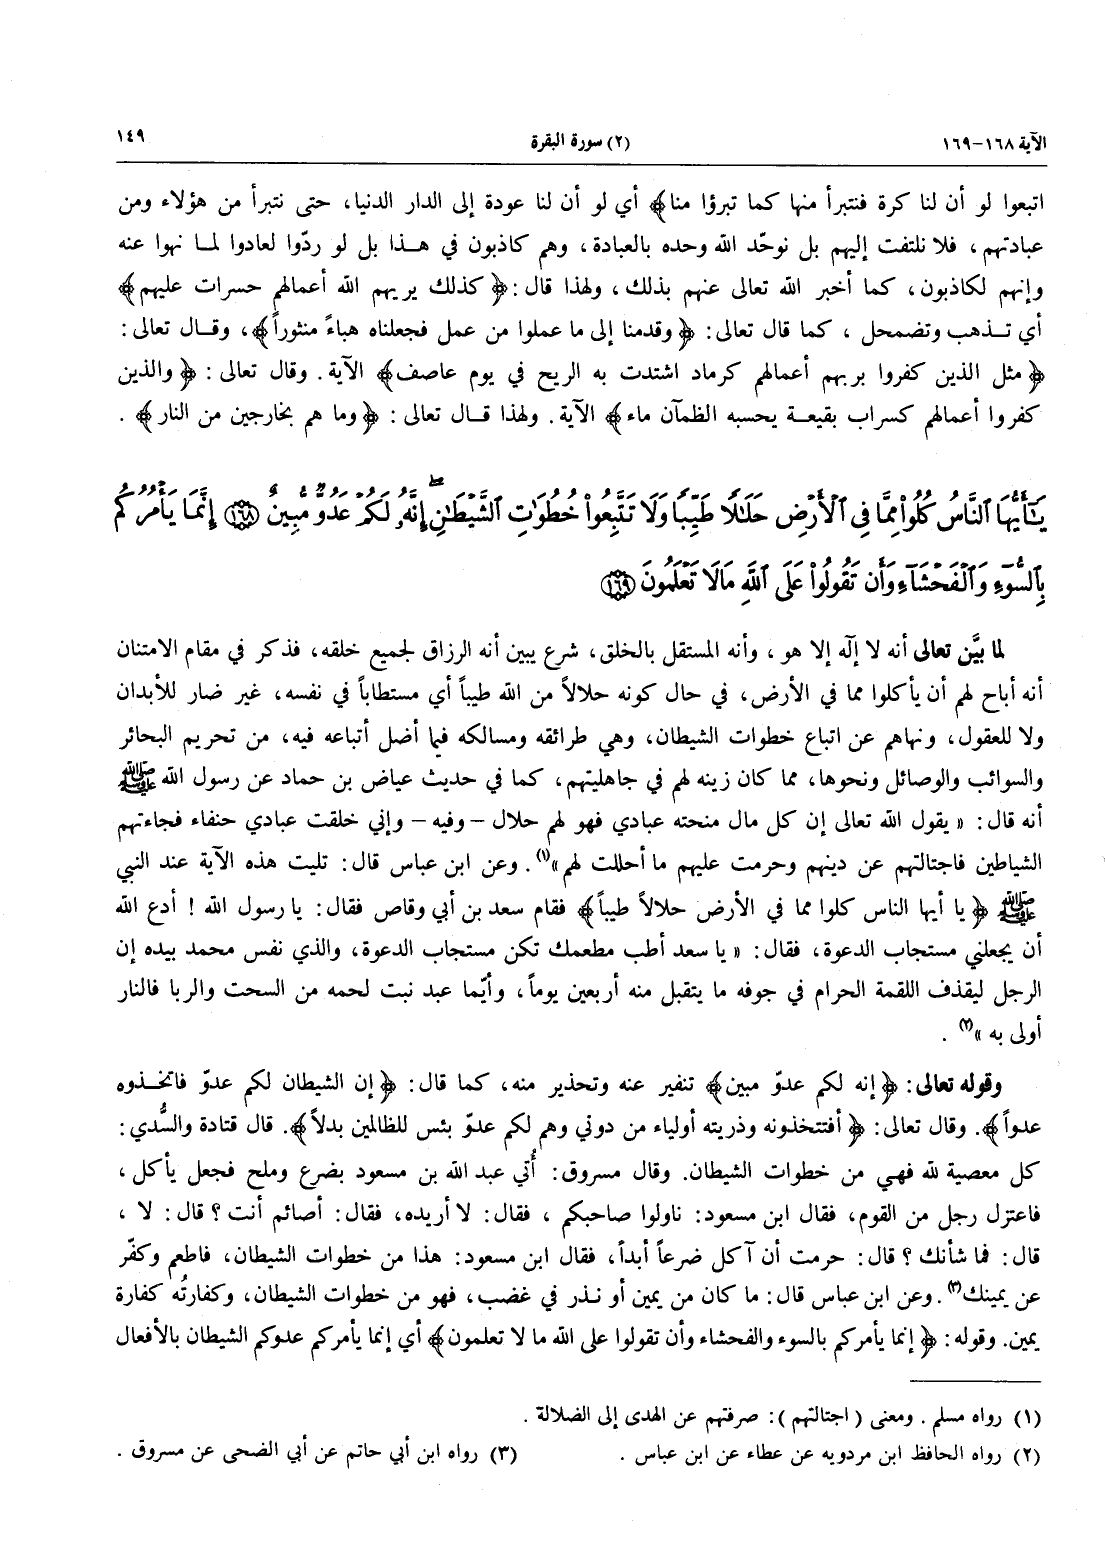 الآية ١٦٨-١٦٩
(٢) سورة البقرة
١٤٩
اتبعوا لو أن لنا كرة فنتبرأ منها كما تبرؤا منا﴾ أي لو أن لنا عودة إلى الدار الدنيا، حتى نتبرأ من هؤلاء ومن
عبادتهم، فلا نلتفت إليهم بل نوحّد الله وحده بالعبادة، وهم كاذبون في هذا بل لو ردّوا لعادوا لما نهوا عنه
وإنهم لكاذبون، كما أخبر الله تعالى عنهم بذلك، ولهذا قال: ﴿كذلك يريهم الله أعمالهم حسرات عليهم﴾
أي تذهب وتضمحل، كما قال تعالى: ﴿وقدمنا إلى ما عملوا من عمل فجعلناه هباءً منثوراً﴾، وقال تعالى:
﴿مثل الذين كفروا بربهم أعمالهم كرماد اشتدت به الريح في يوم عاصف﴾ الآية. وقال تعالى: ﴿والذين
كفروا أعمالهم كسراب بقيعة يحسبه الظمآن ماء﴾ الآية. ولهذا قال تعالى: ﴿وما هم بخارجين من النار﴾.
يَٰٓأَيُّهَا ٱلنَّاسُ كُلُوا۟ مِمَّا فِى ٱلْأَرْضِ حَلَٰلًا طَيِّبًا وَلَا تَتَّبِعُوا۟ خُطُوَٰتِ ٱلشَّيْطَٰنِ ۚ إِنَّهُۥ لَكُمْ عَدُوٌّ مُّبِينٌ ﴿١٦٨﴾ إِنَّمَا يَأْمُرُكُم
بِٱلسُّوٓءِ وَٱلْفَحْشَآءِ وَأَن تَقُولُوا۟ عَلَى ٱللَّهِ مَا لَا تَعْلَمُونَ ﴿١٦٩﴾
لما بيَّن تعالى أنه لا إلَه إلا هو، وأنه المستقل بالخلق، شرع يبين أنه الرزاق لجميع خلقه، فذكر في مقام الامتنان
أنه أباح لهم أن يأكلوا مما في الأرض، في حال كونه حلالاً من الله طيباً أي مستطاباً في نفسه، غير ضار للأبدان
ولا للعقول، ونهاهم عن اتباع خطوات الشيطان، وهي طرائقه ومسالكه فيما أضل أتباعه فيه، من تحريم البحائر
والسوائب والوصائل ونحوها، مما كان زينه لهم في جاهليتهم، كما في حديث عياض بن حماد عن رسول الله ﷺ
أنه قال: «يقول الله تعالى إن كل مال منحته عبادي فهو لهم حلال - وفيه - وإني خلقت عبادي حنفاء فجاءتهم
الشياطين فاجتالتهم عن دينهم وحرمت عليهم ما أحللت لهم»(١). وعن ابن عباس قال: تليت هذه الآية عند النبي
ﷺ ﴿يا أيها الناس كلوا مما في الأرض حلالاً طيباً﴾ فقام سعد بن أبي وقاص فقال: يا رسول الله! أدع الله
أن يجعلني مستجاب الدعوة، فقال: «يا سعد أطب مطعمك تكن مستجاب الدعوة، والذي نفس محمد بيده إن
الرجل ليقذف اللقمة الحرام في جوفه ما يتقبل منه أربعين يوماً، وأيّما عبد نبت لحمه من السحت والربا فالنار
أولى به»(٢).
وقوله تعالى: ﴿إنه لكم عدوّ مبين﴾ تنفير عنه وتحذير منه، كما قال: ﴿إن الشيطان لكم عدوّ فاتخذوه
عدواً﴾. وقال تعالى: ﴿أفتتخذونه وذريته أولياء من دوني وهم لكم عدوّ بئس للظالمين بدلاً﴾. قال قتادة والسُّدي:
كل معصية لله فهي من خطوات الشيطان. وقال مسروق: أُتي عبد الله بن مسعود بضرع وملح فجعل يأكل،
فاعتزل رجل من القوم، فقال ابن مسعود: ناولوا صاحبكم، فقال: لا أريده، فقال: أصائم أنت؟ قال: لا،
قال: فما شأنك؟ قال: حرمت أن آكل ضرعاً أبداً، فقال ابن مسعود: هذا من خطوات الشيطان، فاطعم وكفّر
عن يمينك(٣). وعن ابن عباس قال: ما كان من يمين أو نذر في غضب، فهو من خطوات الشيطان، وكفارتُه كفارة
يمين. وقوله: ﴿إنما يأمركم بالسوء والفحشاء وأن تقولوا على الله ما لا تعلمون﴾ أي إنما يأمركم عدوكم الشيطان بالأفعال
(١) رواه مسلم. ومعنى (اجتالتهم): صرفتهم عن الهدى إلى الضلالة.
(٢) رواه الحافظ ابن مردويه عن عطاء عن ابن عباس.
(٣) رواه ابن أبي حاتم عن أبي الضحى عن مسروق.